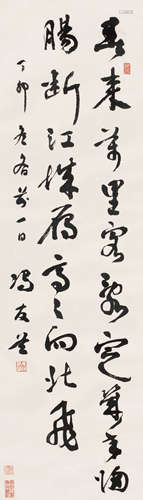 春来萬里客亂定幾年歸
腸斷江城雁高々向北飛
丁卯前一日 馮友蘭